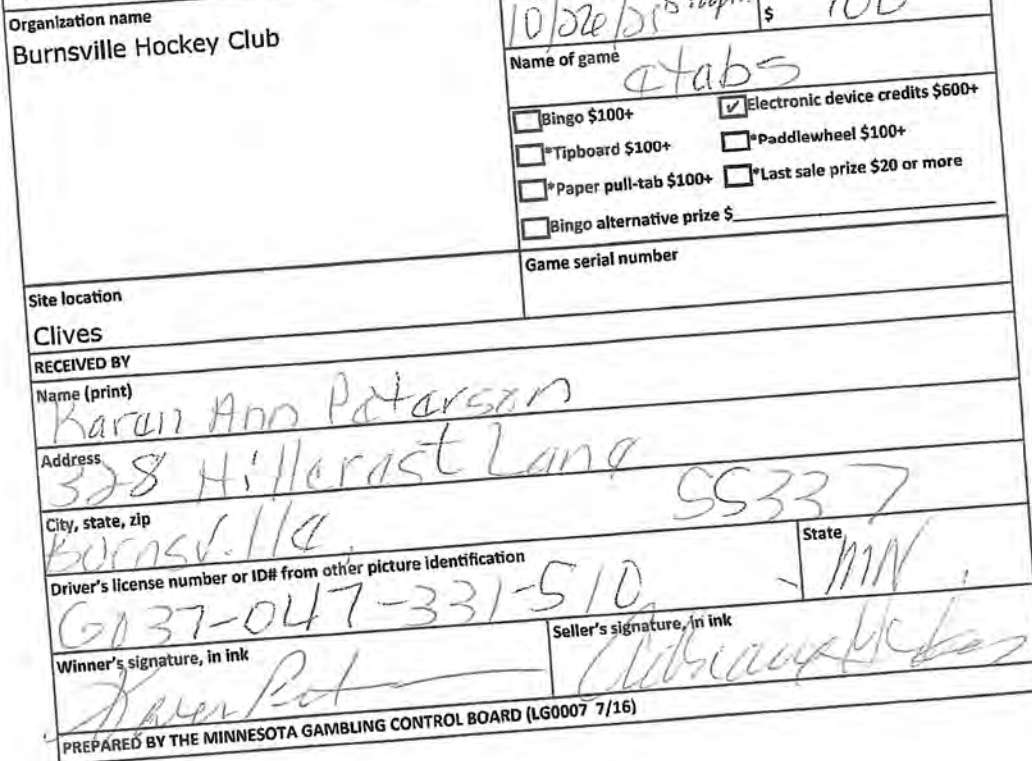 Organization name
Burnsville Hockey Club
$ 700
Name of game
etabs
Bingo $100+
✔ Electronic device credits $600+
*Tipboard $100+
*Paddlewheel $100+
*Paper pull-tab $100+
*Last sale prize $20 or more
Bingo alternative prize $
Site location
Clives
Game serial number
RECEIVED BY
Name (print)
Karen Ann Peterson
Address
328 Hillcrest Lane
City, state, zip
Burnsville, 55337
Driver's license number or ID# from other picture identification
G137-047-331-510
State
MN
Winner's signature, in ink
Karen Pet
Seller's signature, in ink
PREPARED BY THE MINNESOTA GAMBLING CONTROL BOARD (LG0007 7/16)